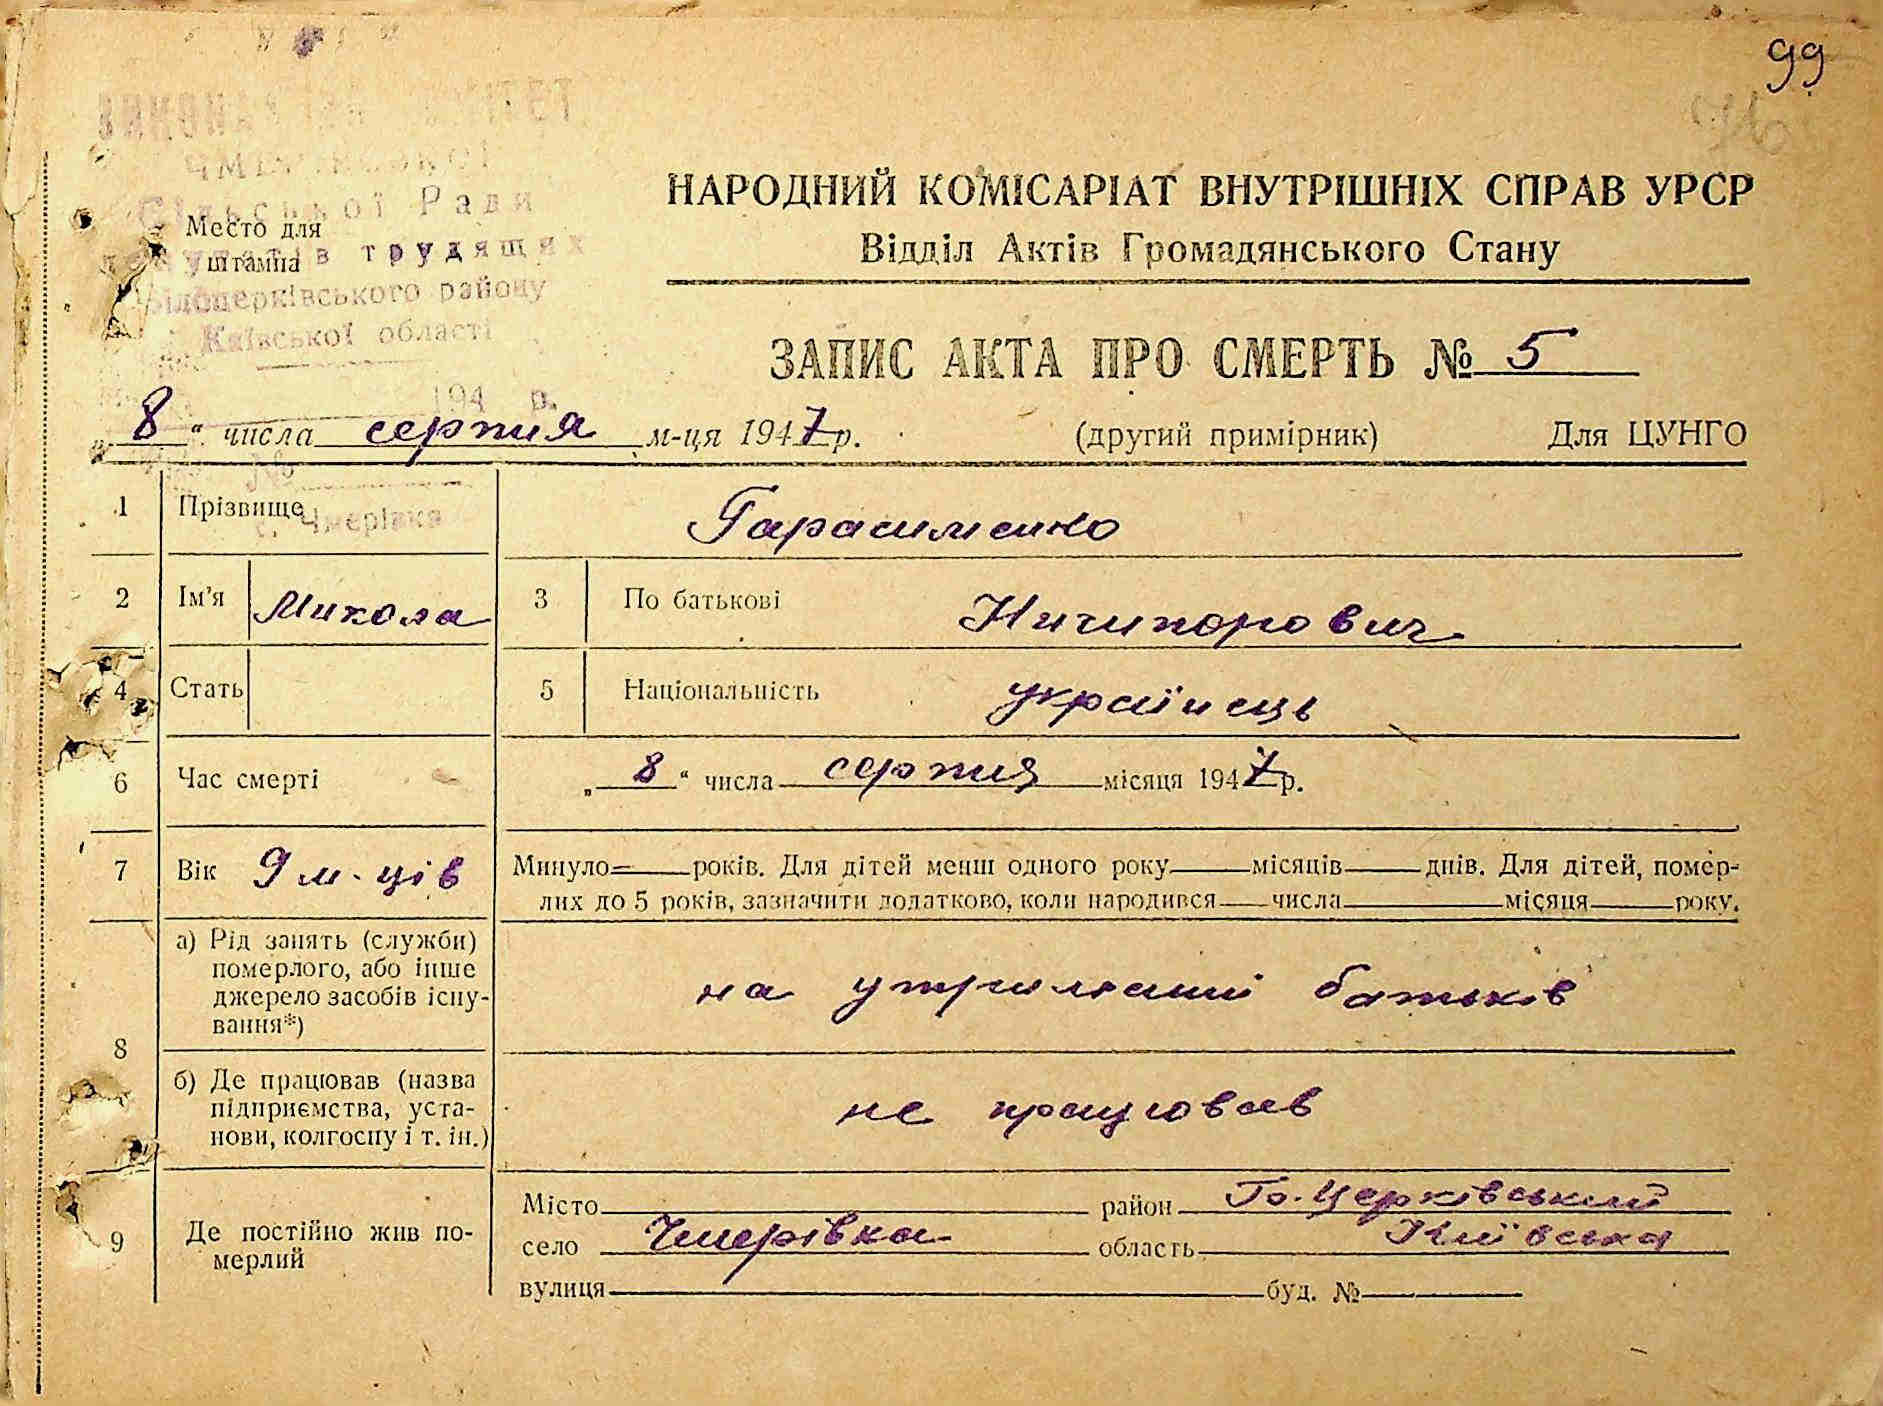 99
Сільської Ради
Место для
штампа
депутатів трудящих
Білоцерківського району
Київської області
194 р.
№
с. Чмерівка
НАРОДНИЙ КОМІСАРІАТ ВНУТРІШНІХ СПРАВ УРСР
Відділ Актів Громадянського Стану
ЗАПИС АКТА ПРО СМЕРТЬ № 5
„ 8 “ числа серпня м-ця 1947 р. (другий примірник) Для ЦУНГО
1 Прізвище Гарасименко
2 Ім'я Микола 3 По батькові Ничипорович
4 Стать 5 Національність українець
6 Час смерті „ 8 “ числа серпня місяця 1947 р.
7 Вік 9 м-ців Минуло = років. Для дітей менш одного року місяців днів. Для дітей, помер-
лих до 5 років, зазначити додатково, коли народився числа місяця року.
8 а) Рід занять (служби)
померлого, або інше
джерело засобів існу-
вання*)
на утриманні батьків
б) Де працював (назва
підприємства, уста-
нови, колгоспу і т. ін.)
не працював
9 Де постійно жив по-
мерлий
Місто район Б-Церківський
село Чмерівка область Київська
вулиця буд. №